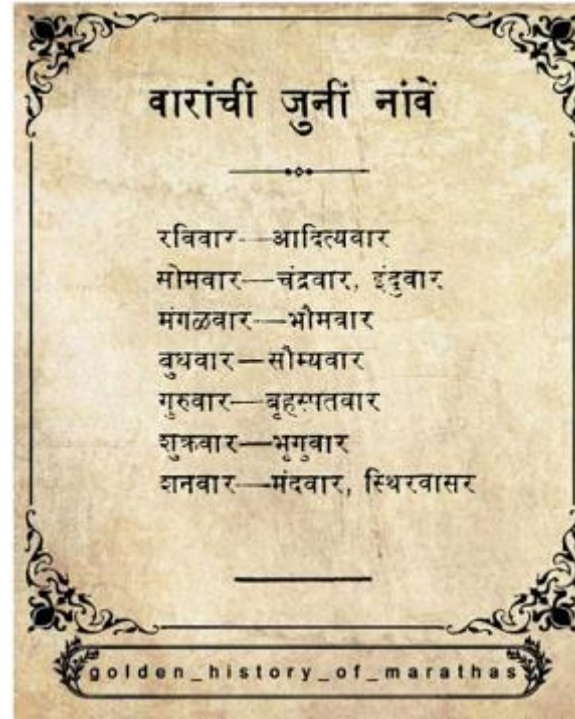 वारांचीं जुनीं नांवें
रविवार—आदित्यवार
सोमवार—चंद्रवार, इंदुवार
मंगळवार—भौमवार
बुधवार—सौम्यवार
गुरुवार—बृहस्पतवार
शुक्रवार—भृगुवार
शनवार—मंदवार, स्थिरवासर
golden_history_of_marathas